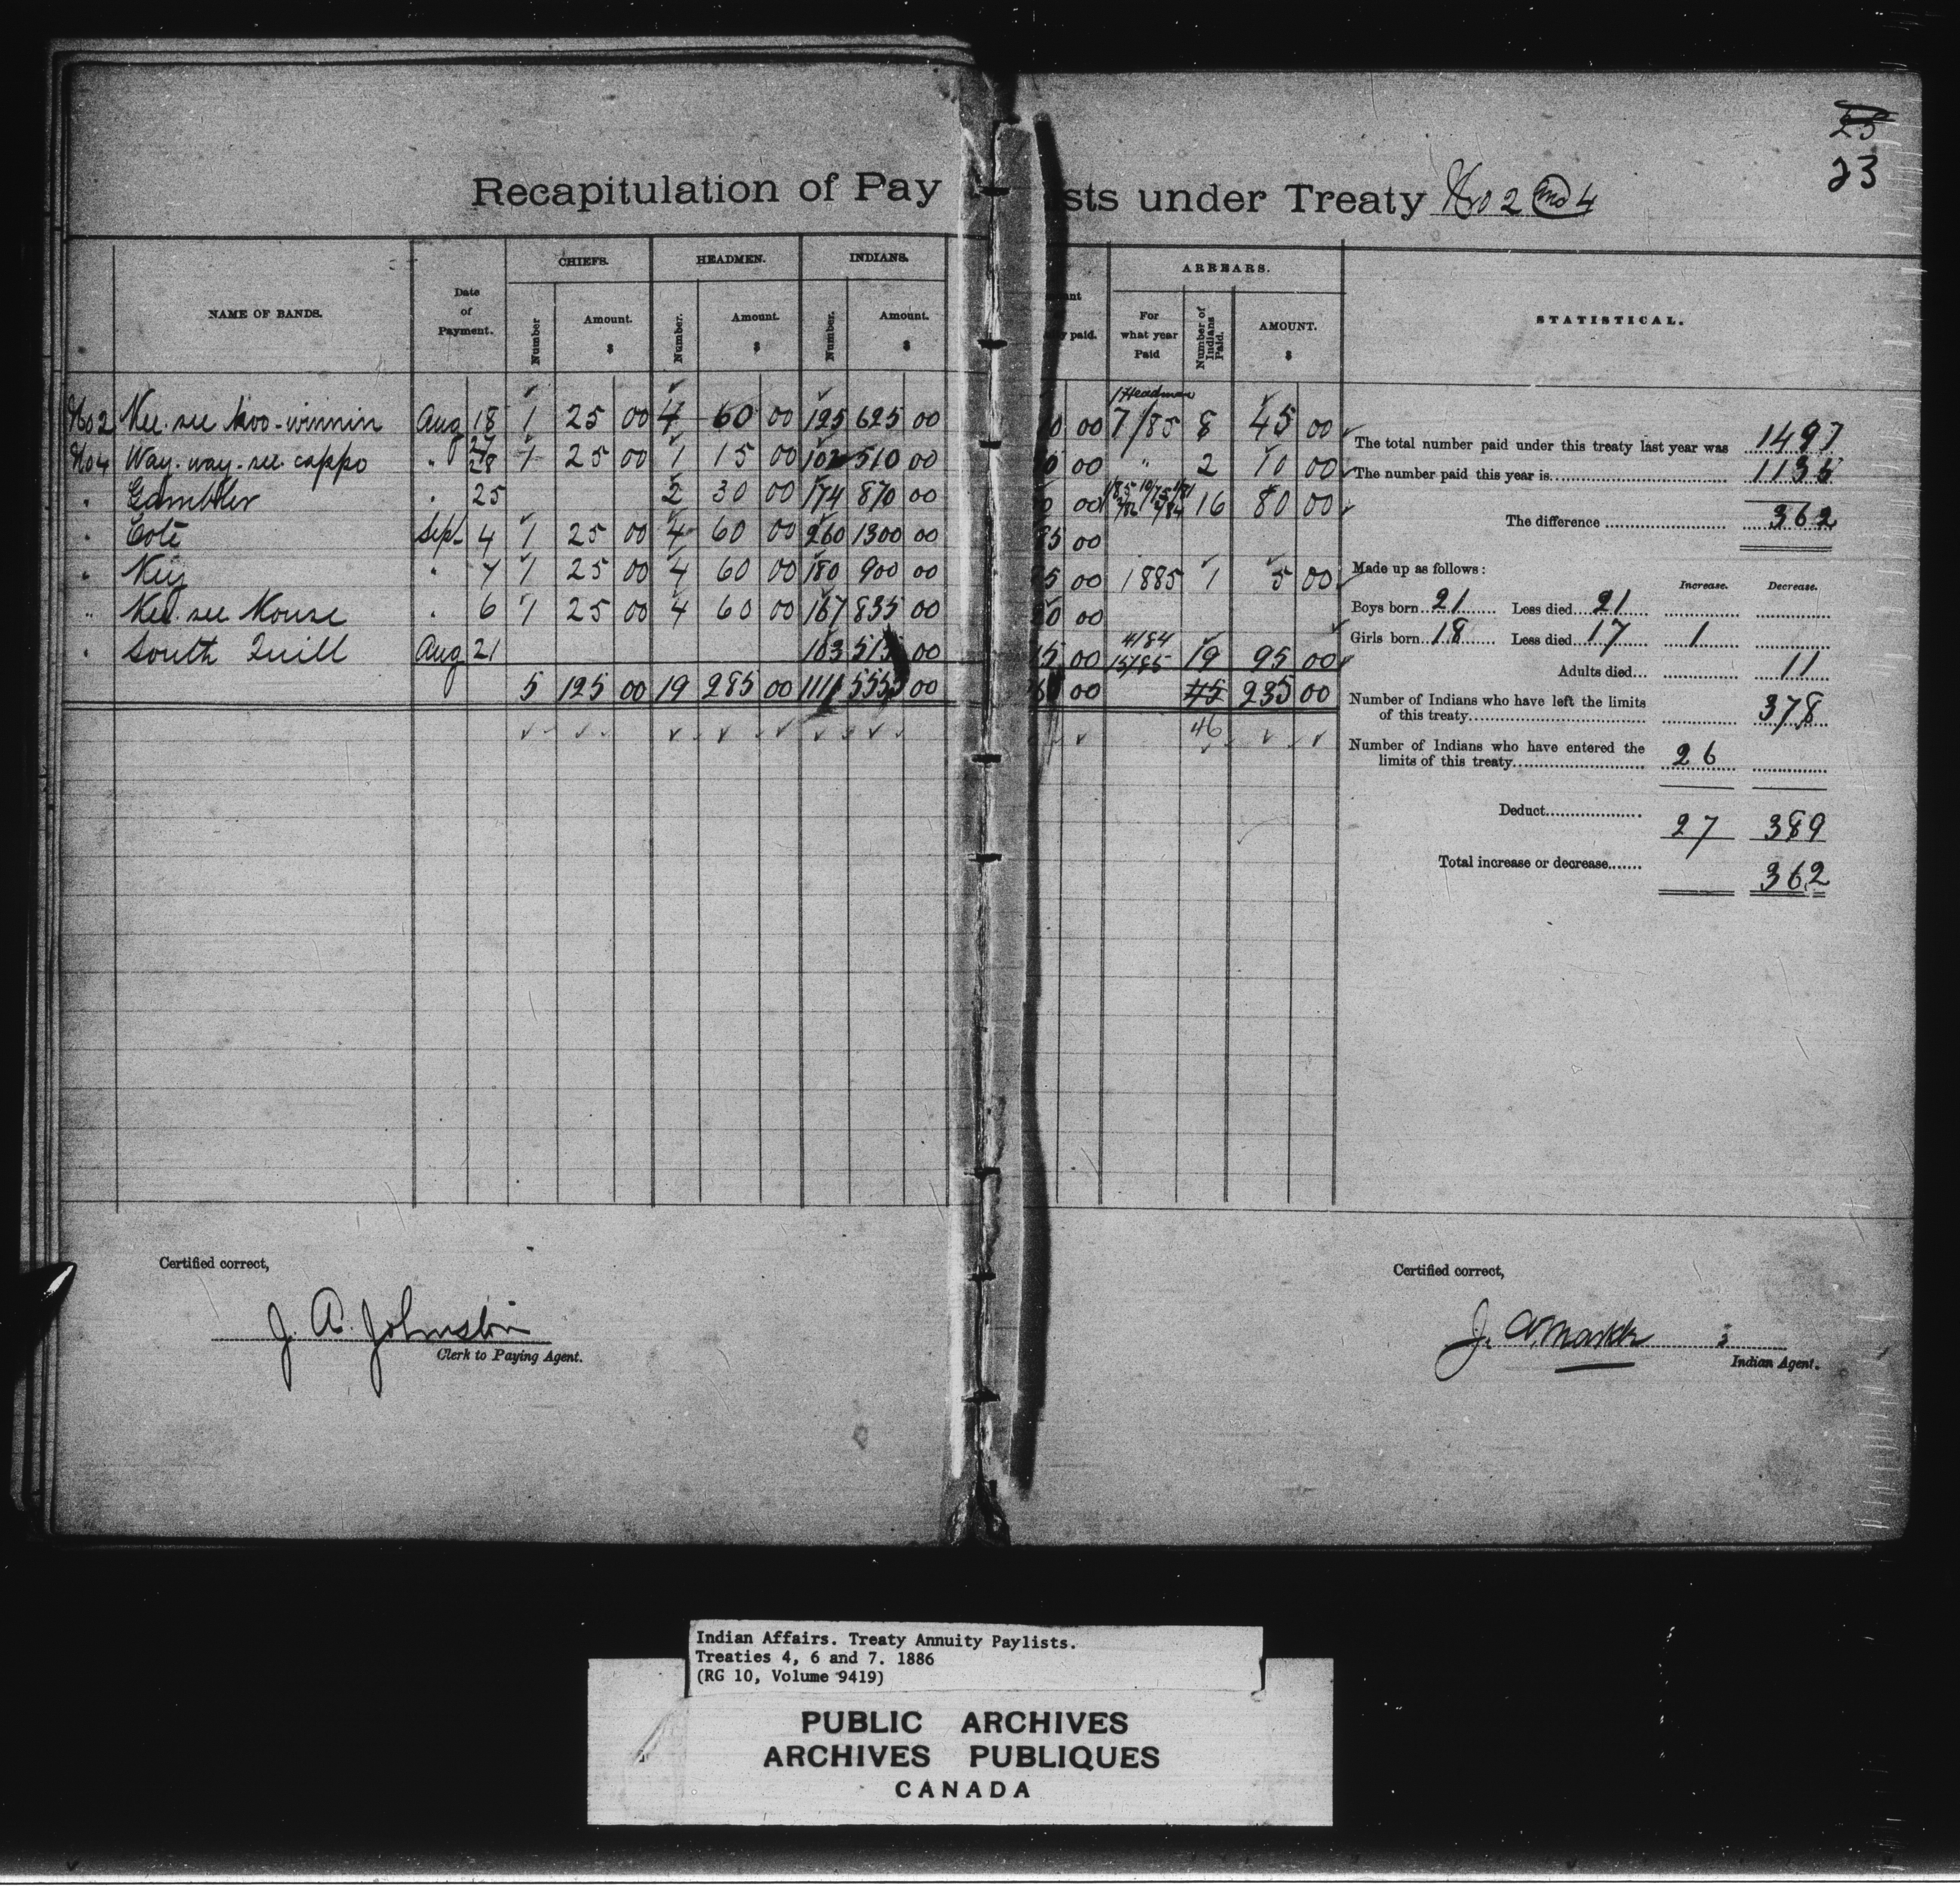 23
Recapitulation of Pay sts under Treaty No 2 and 4
NAME OF BANDS. Date of Payment. CHIEFS. HEADMEN. INDIANS. ARREARS. STATISTICAL.
Number Amount. $ Number. Amount. $ Number. Amount. $ paid. For what year Paid Number of Indians Paid. AMOUNT. $
1 Headman
No 2 Kee-see-koo-winnin Aug 18 1 25 00 4 60 00 125 625 00 0 00 7/85 8 45 00
No 4 Way-way-see-cappo " 27 28 1 25 00 1 15 00 102 510 00 0 00 " 2 10 00
" Gambler " 25 2 30 00 174 870 00 0 00 16 80 00
" Coté Sep 4 1 25 00 4 60 00 260 1300 00 85 00
" Key " 7 1 25 00 4 60 00 180 900 00 85 00 1885 1 5 00
" Kee-see Kouse " 6 1 25 00 4 60 00 167 835 00 20 00
" South Quill Aug 21 103 515 00 15 00 4/84 15/85 19 95 00
5 125 00 19 285 00 1111 5555 00 00 45 235 00
46
The total number paid under this treaty last year was 1497
The number paid this year is 1135
The difference 362
Made up as follows:
Increase. Decrease.
Boys born 21 Less died 21
Girls born 18 Less died 17 1
Adults died 11
Number of Indians who have left the limits
of this treaty 378
Number of Indians who have entered the
limits of this treaty 26
Deduct 27 389
Total increase or decrease 362
Certified correct,
J. A. Johnston
Clerk to Paying Agent.
Certified correct,
J. A. Markle
Indian Agent.
Indian Affairs. Treaty Annuity Paylists.
Treaties 4, 6 and 7. 1886
(RG 10, Volume 9419)
PUBLIC ARCHIVES
ARCHIVES PUBLIQUES
CANADA